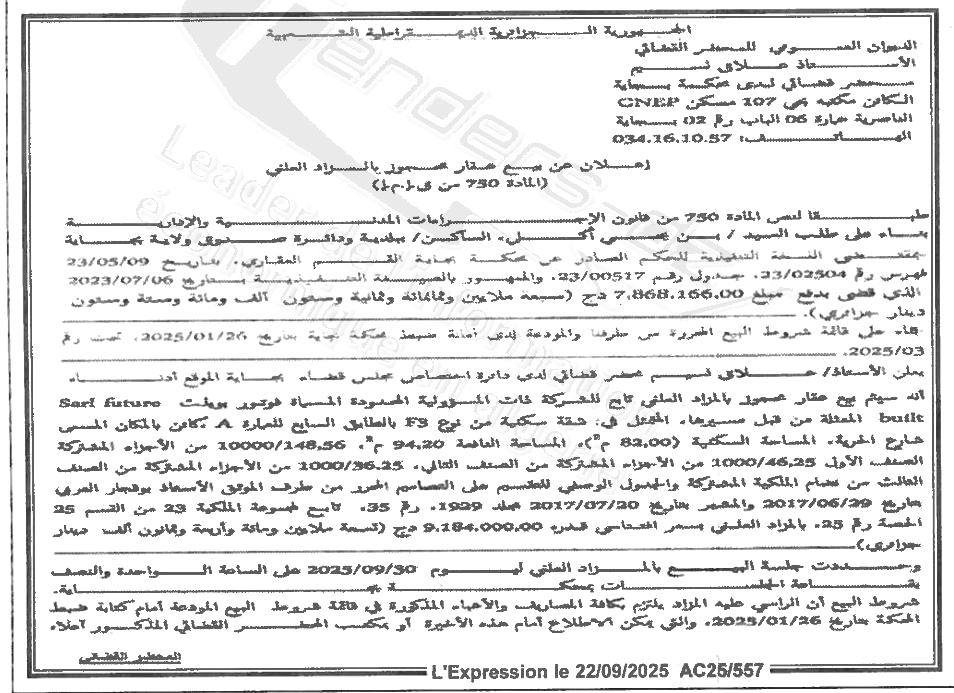 الجمهورية الجزائرية الديمقراطية الشعبية
الديوان العمومي للمحضر القضائي
الأستاذ علاق نسيم
محضر قضائي لدى محكمة بجاية
الكائن مكتبه بحي 107 مسكن CNEP
الناصرية عمارة 06 الباب رقم 02 بجاية
الهاتف: 034.16.10.57
إعلان عن بيع عقار محجوز بالمزاد العلني
(المادة 750 من ق.إ.م.إ)
طبقا لنص المادة 750 من قانون الإجراءات المدنية والإدارية
بناء على طلب السيد / بن يحيى أكلي، الساكن/ ببلدية ودائرة صدوق ولاية بجاية
بمقتضى النسخة التنفيذية للحكم الصادر عن محكمة بجاية القسم العقاري، بتاريخ 23/05/09
فهرس رقم 23/02504، جدول رقم 23/00517، والممهور بالصيغة التنفيذية بتاريخ 2023/07/06
الذي قضى بدفع مبلغ 7,868,166,00 دج (سبعة ملايين وثمانمائة وثمانية وستون ألف ومائة وستة وستون
دينار جزائري).
بناء على قائمة شروط البيع المحررة من طرفنا والمودعة لدى أمانة ضبط محكمة بجاية بتاريخ 2025/01/26، تحت رقم
2025/03.
يعلن الأستاذ/ علاق نسيم محضر قضائي لدى دائرة اختصاص مجلس قضاء بجاية الموقع أدناه
أنه سيتم بيع عقار محجوز بالمزاد العلني تابع للشركة ذات المسؤولية المحدودة المسماة فوتور بويلت Sarl future
built الممثلة من قبل مسيرها، المتمثل في: شقة سكنية من نوع F3 بالطابق السابع للعمارة A مكائن بالمكان المسمى
شارع الحرية، المساحة السكنية (82,00 م²)، المساحة النافعة 94,20 م²، 10000/148,56 من الأجزاء المشتركة
الصنف الأول 1000/46,25 من الأجزاء المشتركة من الصنف الثاني، 1000/36,25 من الأجزاء المشتركة من الصنف
الثالث من نظام الملكية المشتركة والجدول الوصفي للتقسيم على التصاميم المحرر من طرف الموثق الأستاذ بوقجار العربي
بتاريخ 2017/06/29 والمشهر بتاريخ 2017/07/20 مجلد 1929، رقم 35، تابع لمجموعة الملكية 23 من القسم 25
الحصة رقم 25، بالمزاد العلني بسعر افتتاحي قدره 9,184,000,00 دج (تسعة ملايين ومائة وأربعة وثمانون ألف دينار
جزائري).
وحددت جلسة البيع بالمزاد العلني ليوم 2025/09/30 على الساعة الواحدة والنصف
بقاعة الجلسات بمحكمة بجاية.
شروط البيع أن الراسي عليه المزاد يلتزم بكافة المصاريف والأعباء المذكورة في قائمة شروط البيع المودعة أمام كتابة ضبط
المحكمة بتاريخ 2025/01/26، والتي يمكن الاطلاع أمام هذه الأخيرة أو بمكتب المحضر القضائي المذكور أعلاه
المحضر القضائي
L'Expression le 22/09/2025 AC25/557
Tenders
Leader de l'information